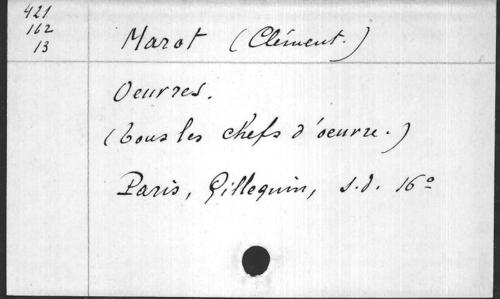 421
162
13
Marot (Clément.)
Oeuvres.
(tous les chefs d'oeuvre.)
Paris, Gillequin, s.d. 16º